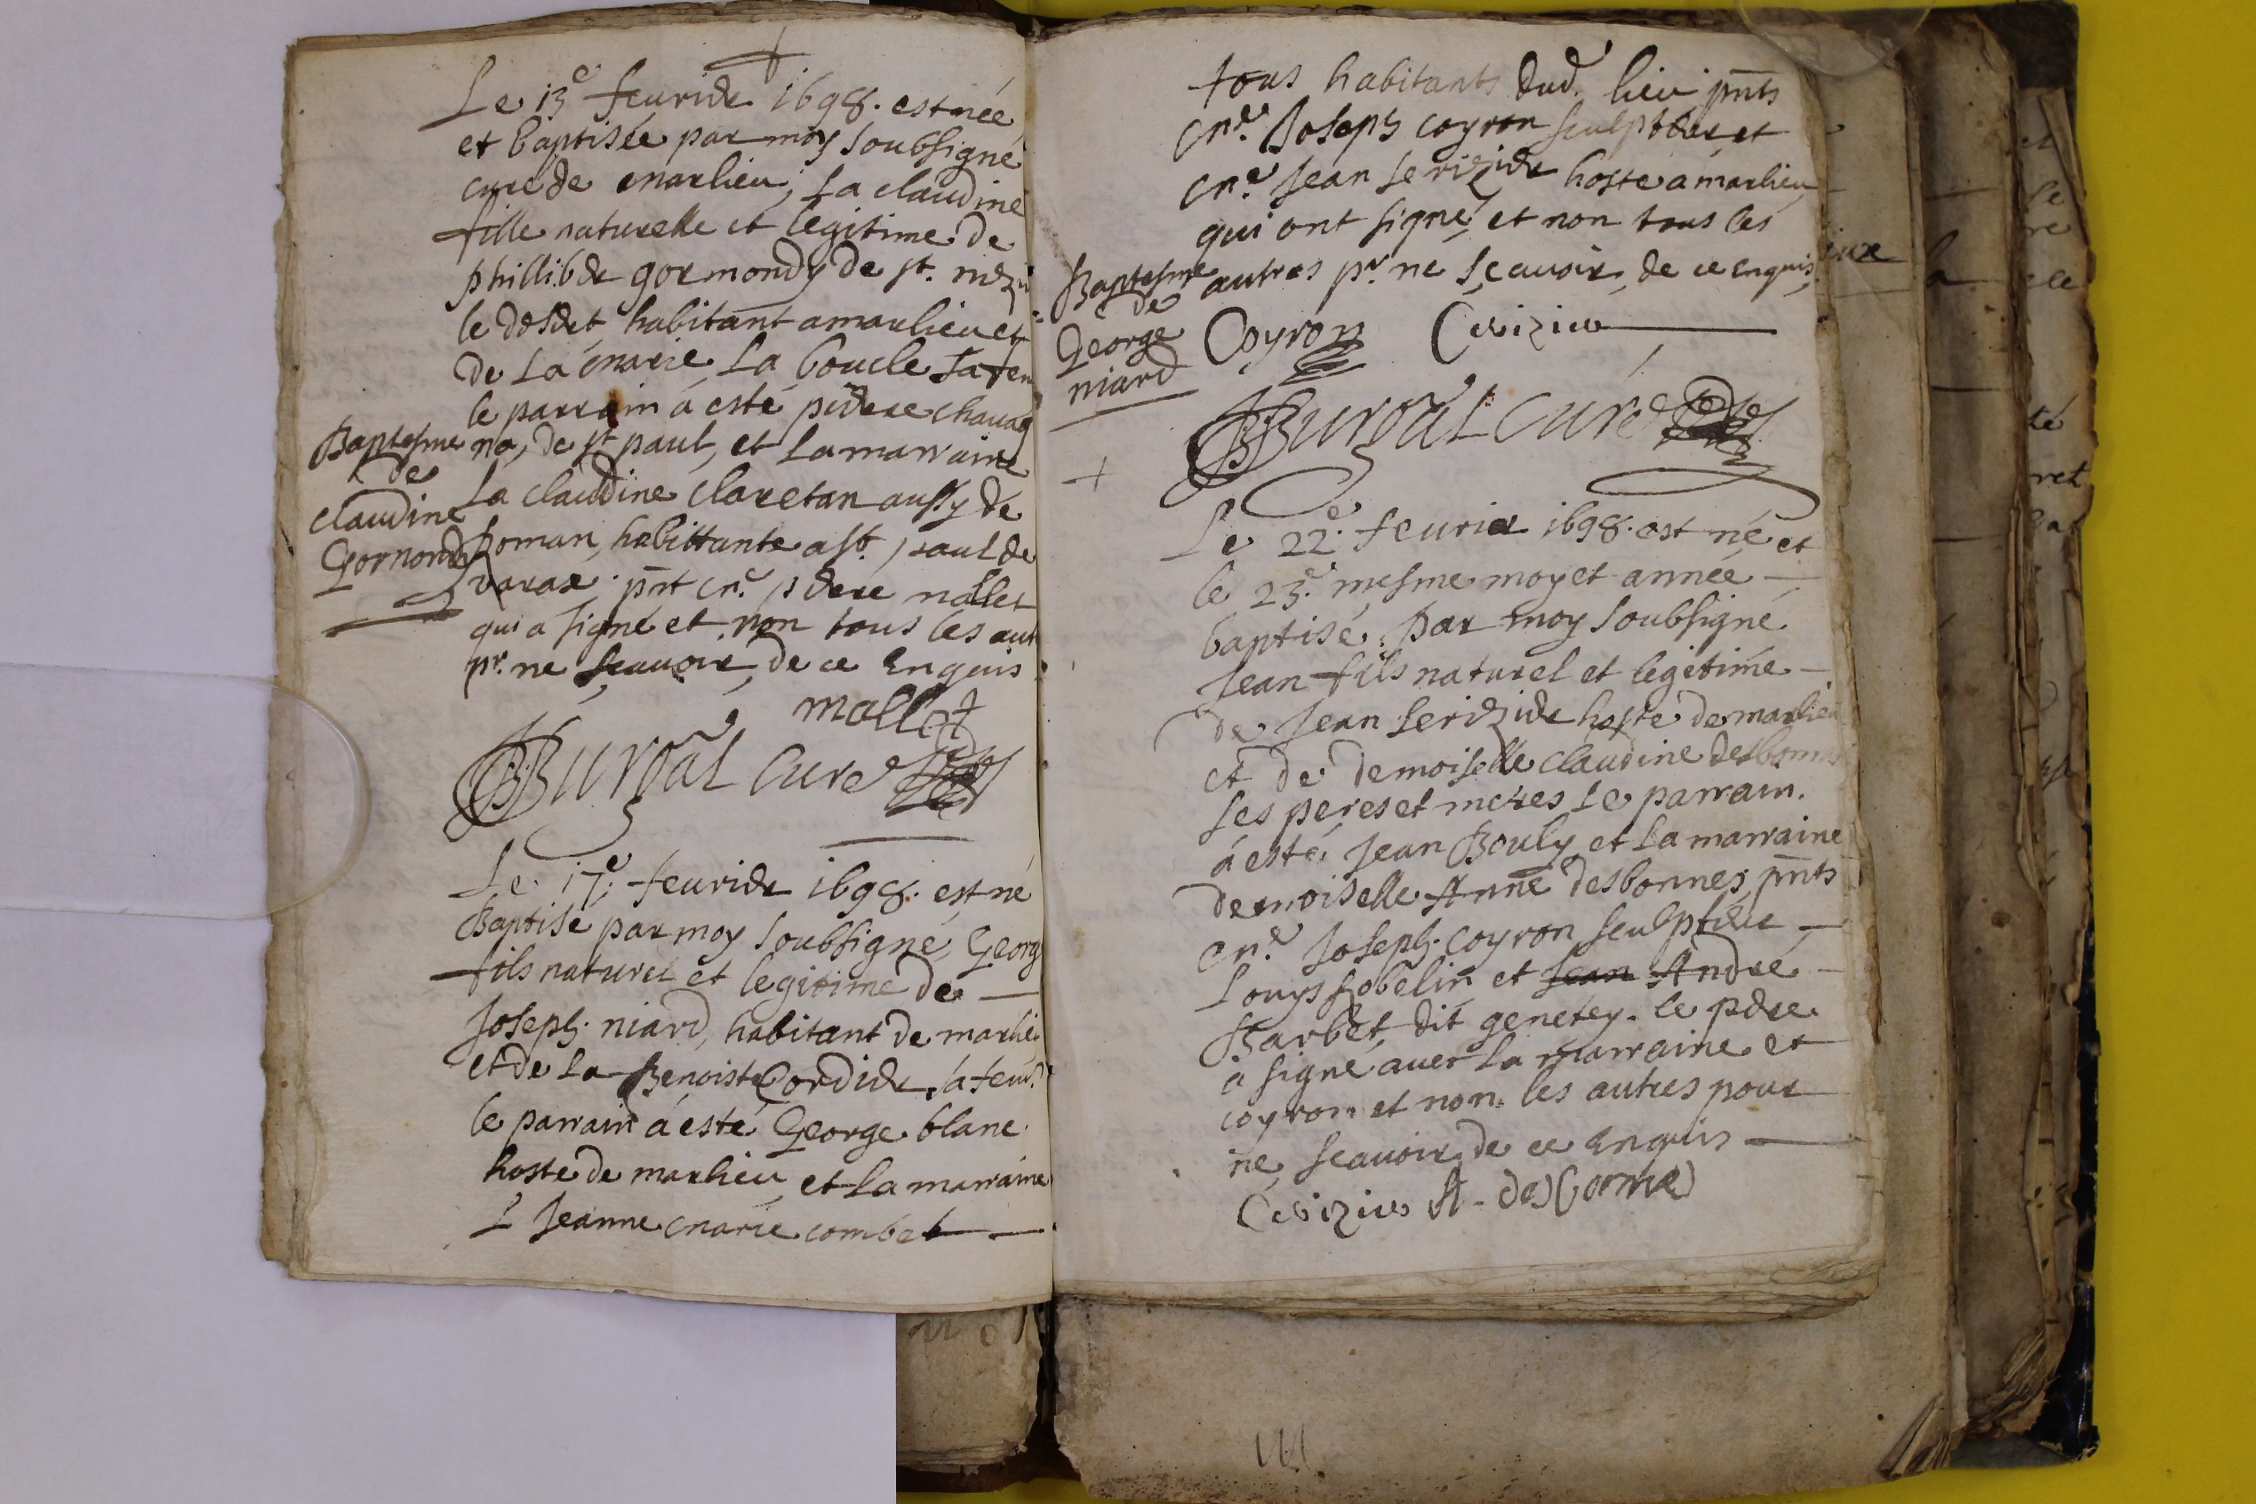 Le 13e feurier 1698. est née
et baptisée par moy soubsigné
curé de marlieu, La claudine
fille naturelle et legitime de
phillib.er gormondy de st. nizi
le desert habitant a marlieu et
de La marie La boucle sa fem
le parrain a esté pierre chauag
na, de st paul, et La marraine
La claudine claretan aussy de
Roman, habittante a st. paul de
varax. pnt mre. pierre mollet
qui a signé et non tous les aut
pr. ne scauoir, de ce Enquis
mollet
Burdal curé
Baptesme
de
claudine
Gormondy
Le 17e. feurier 1698. est né
Baptisé par moy soubsigné, Georg
fils naturel et legitime de
Joseph niard, habitant de marlie
et de La Benoiste Cordier, sa fem.
le parrain a esté George blanc
hoste de marlieu, et La marraine
L Jeanne marie combet
tous habitants dud. lieu pnts
mre. Joseph coyron sculpteur, et
mre. Jean serizier hoste a marlieu
qui ont signé, et non tous les
autres pr. ne scauoir, de ce enquis,
Baptesme
de
George
niard
Coyron Cerizier
Burdal curé
Le 22e. feurier 1698. est né et
le 23e. mesme moy et année
baptisé par moy soubsigné
Jean fils naturel et legitime
de Jean serizier hoste de marlieu
et de demoiselle claudine
ses peres et meres Le parrain.
a esté Jean Bouly et La marraine
demoiselle Anne desbonnes, pnts
mre. Joseph coyron sculpteur
Louys gobelin et Jean André
Barbet, dit genetey. le pere
a signé auec La marraine et
coyron et non les autres pour
ne scauoir de ce Enquis
Cerizier A. desbonne